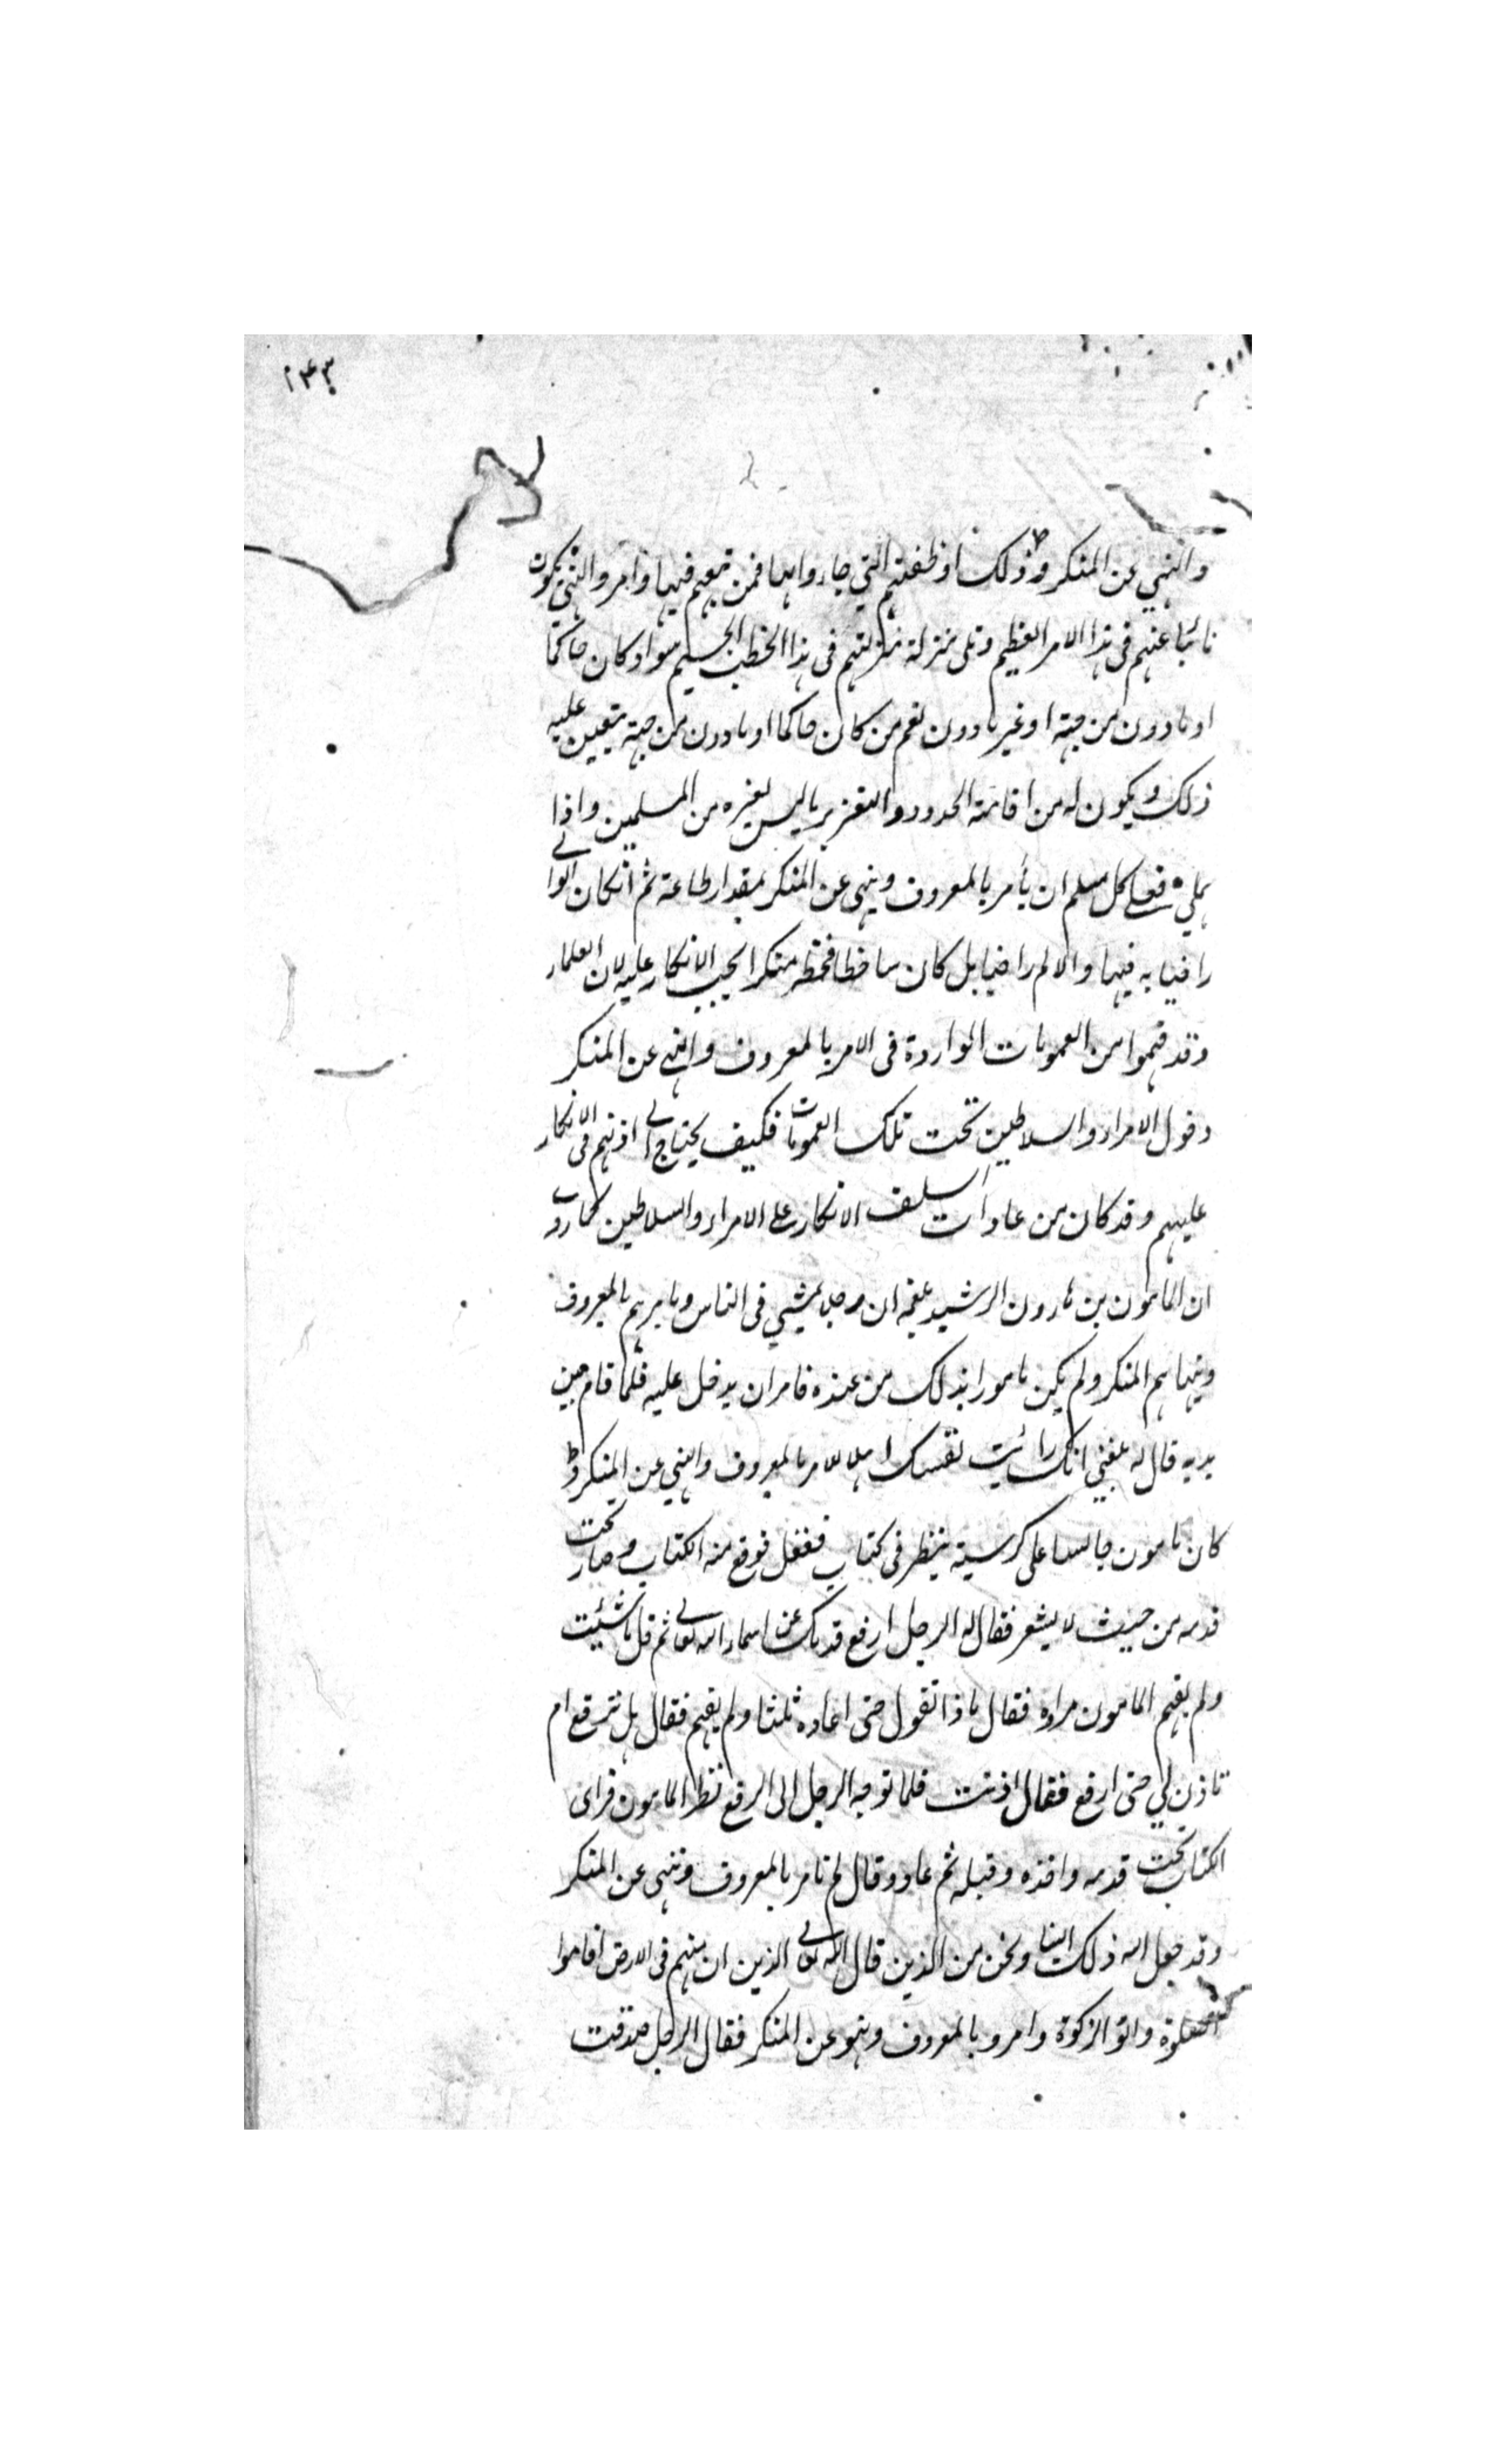 ١٤٣
والنهي عن المنكر وذلك اوظفتهم التي جاءوا بها فمن تبعهم فيها وامر والنهي يكون
نائبا عنهم في هذا الامر العظيم ونلى بمنزلة منزلتهم في هذا الخطب الجسيم سواء كان حاكما
او مادون من جهته او غير مادون نعم من كان حاكما او مادون من جهته يتعين عليه
ذلك ويكون له من اقامة الحدود والتعزير ما ليس لغيره من المسلمين واذا
فعلى كل مسلم ان يأمر بالمعروف وينهى عن المنكر بمقدار طاعة ثم ان كان الوالي
راضيا به فيها والا لم راضيا بل كان ساخطا منكر ايجب الانكار عليه لان العلماء
وقد فهموا من العمومات الواردة في الامر بالمعروف والنهي عن المنكر
دخول الامراء والسلاطين تحت تلك العمومات فكيف يحتاج الى اذنهم في الانكار
عليهم وقد كان من عادات السلف الانكار على الامراء والسلاطين كما روى
ان المامون بن هارون الرشيد بلغه ان رجلا يمشي في الناس ويامرهم بالمعروف
وينهاهم المنكر ولم يكن مامورا بذلك من عنده فامر ان يدخل عليه فلما قام بين
يديه قال له بلغني انك رائيت نفسك اهلا للامر بالمعروف والنهي عن المنكر و
كان مامون جالسا على كرسية ينظر في كتاب فغفل فوقع منه الكتاب وصار تحت
قدمه من حيث لا يشعر فقال له الرجل ارفع قدمك عن اسماء الله تعالى ثم قل ما شئيت
ولم يفهم المامون مراده فقال ماذا تقول حتى اعاده ثلثا ولم يفهم فقال هل ترفع ام
تاذن لي حتى ارفع فقال اذنت فلما توجه الرجل الى الرفع نظر المامون فراى
الكتاب تحت قدمه واخذه وقبله ثم عاد وقال لم تامر بالمعروف وتنهى عن المنكر
وقد جعل الله ذلك الينا ونحن من الذين قال الله تعالى الذين ان مكنهم في الارض اقاموا
الصلوة واتوا الزكوة وامروا بالمعروف ونهو عن المنكر فقال الرجل صدقت